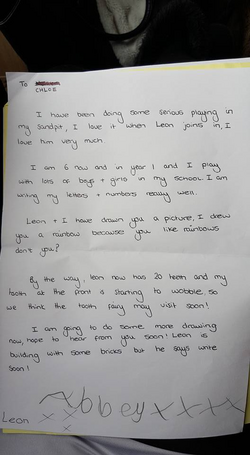 To
CHLOE
I have been doing some serious playing in
my sandpit, I love it when Leon joins in, I
love him very much.
I am 6 now and in year 1 and I play
with lots of boys + girls in my school. I am
writing my letters + numbers really well.
Leon + I have drawn you a picture, I drew
you a rainbow because you like rainbows
don't you?
By the way leon now has 20 teeth and my
tooth at the front is starting to wobble, so
we think the tooth fairy may visit soon!
I am going to do some more drawing
now, hope to hear from you soon! Leon is
building with some bricks but he says write
soon!
Abbey x x x x
Leon x x
x